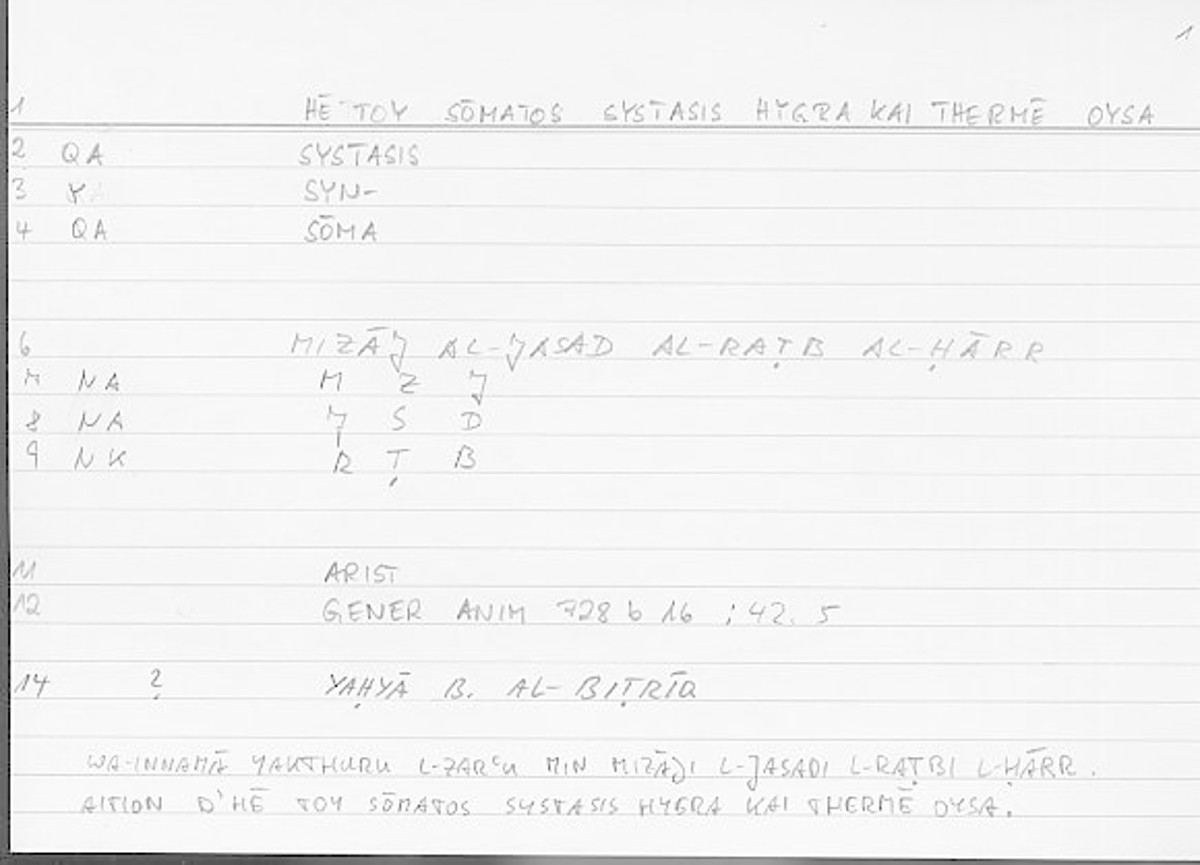 1
1 HĒ TOY SŌMATOS SYSTASIS HYGRA KAI THERMĒ OYSA
2 QA SYSTASIS
3 Y SYN-
4 QA SŌMA
6 MIZĀJ AL-JASAD AL-RAṬB AL-ḤĀRR
7 NA M Z J
8 NA J S D
9 NK R Ṭ B
11 ARIST
12 GENER ANIM 728 b 16 ; 42. 5
14 ? YAḤYĀ B. AL-BIṬRĪQ
WA-INNAMĀ YAKTHURU L-ZARʿU MIN MIZĀJI L-JASADI L-RAṬBI L-ḤĀRR.
AITION D'HĒ TOY SŌMATOS SYSTASIS HYGRA KAI THERMĒ OYSA.